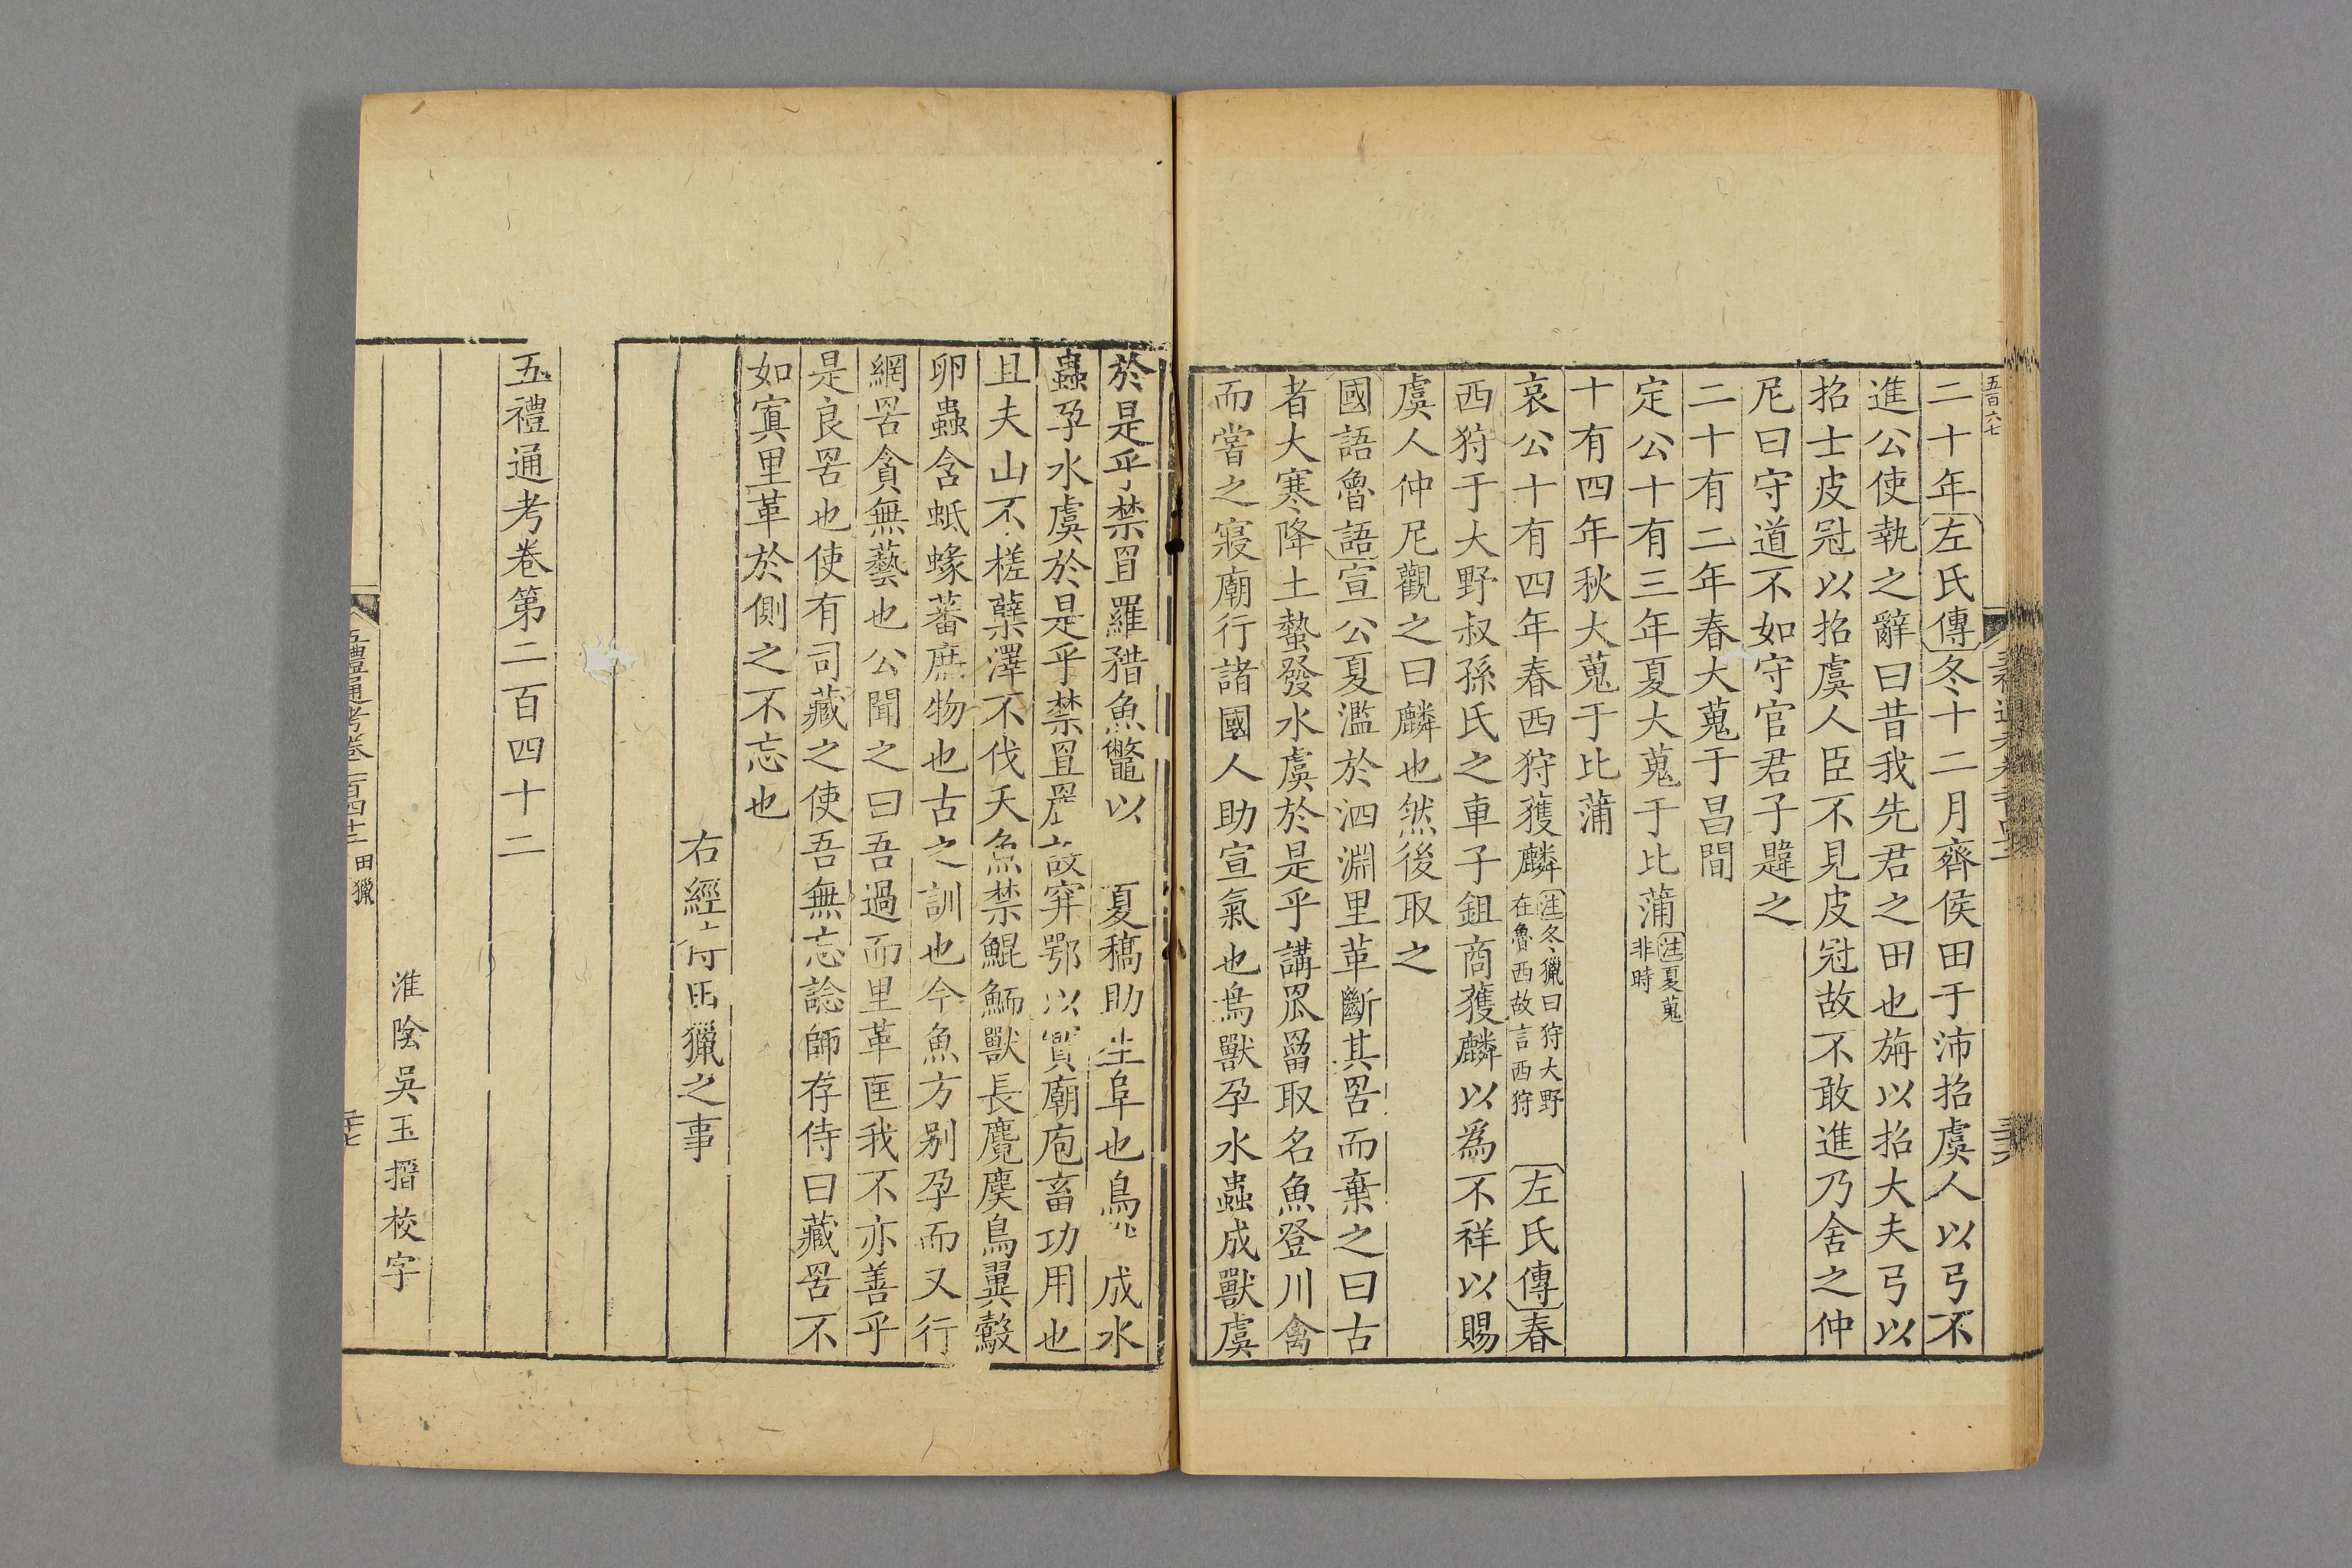 五百六七
二十年左氏傳冬十二月齊侯田于沛招虞人以弓不
進公使執之辭曰昔我先君之田也旃以招大夫弓以
招士皮冠以招虞人臣不見皮冠故不敢進乃舍之仲
尼曰守道不如守官君子韙之
二十有二年春大蒐于昌閒
定公十有三年夏大蒐于比蒲注夏蒐
非時
十有四年秋大蒐于比蒲
哀公十有四年春西狩獲麟注冬獵曰狩大野
在魯西故言西狩 左氏傳春
西狩于大野叔孫氏之車子鉏商獲麟以為不祥以賜
虞人仲尼觀之曰麟也然後取之
國語魯語宣公夏濫於泗淵里革斷其罟而棄之曰古
者大寒降土蟄發水虞於是乎講罛罶取名魚登川禽
而嘗之寢廟行諸國人助宣氣也鳥獸孕水蟲成獸虞
於是乎禁罝羅矠魚鼈以 夏槁助生阜也鳥 成水
蟲孕水虞於是乎禁罝䍡 穽鄂以實廟庖畜功用也
且夫山不槎蘖澤不伐夭魚禁鯤鮞獸長麑麌鳥翼鷇
卵蟲舍蚔蝝蕃庶物也古之訓也今魚方别孕而又行
網罟貪無藝也公聞之曰吾過而里革匡我不亦善乎
是良罟也使有司藏之使吾無忘諗師存侍曰藏罟不
如寘里革於側之不忘也
右經傳田獵之事
五禮通考卷第二百四十二
淮陰吳玉搢校字
五禮通考卷二百四十二 田獵
三十七